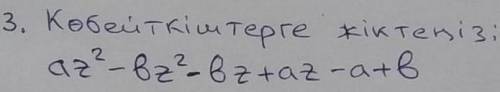 3. Көбейткіштерге жіктеңіз:
az² - bz² - bz + az - a + b